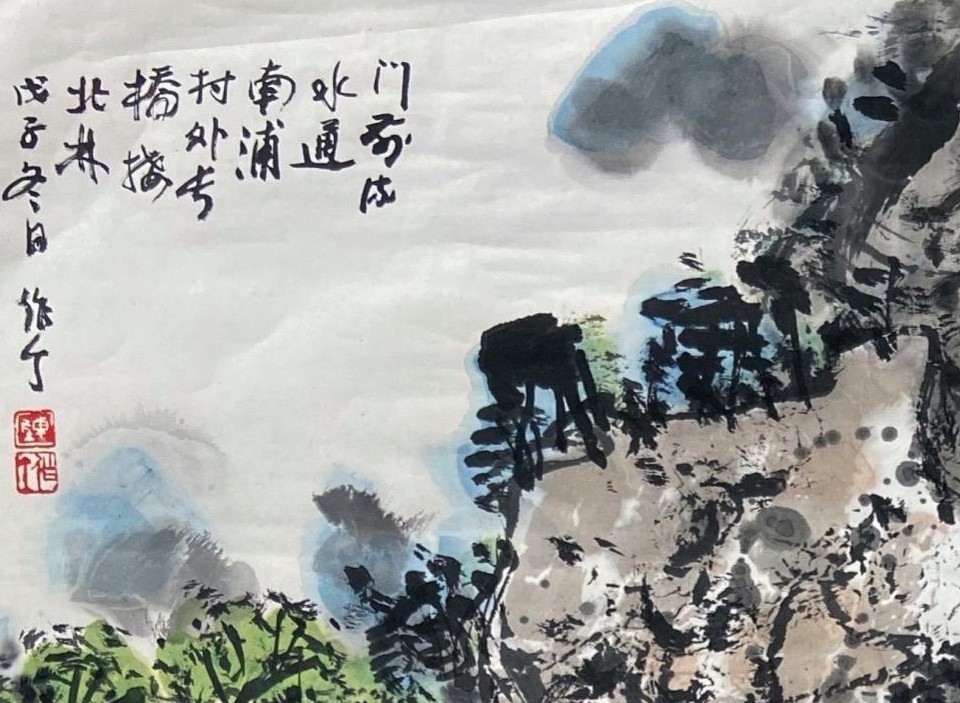 门前流
水通
南浦
村外长
橋接
北林
戊子冬日作
陳